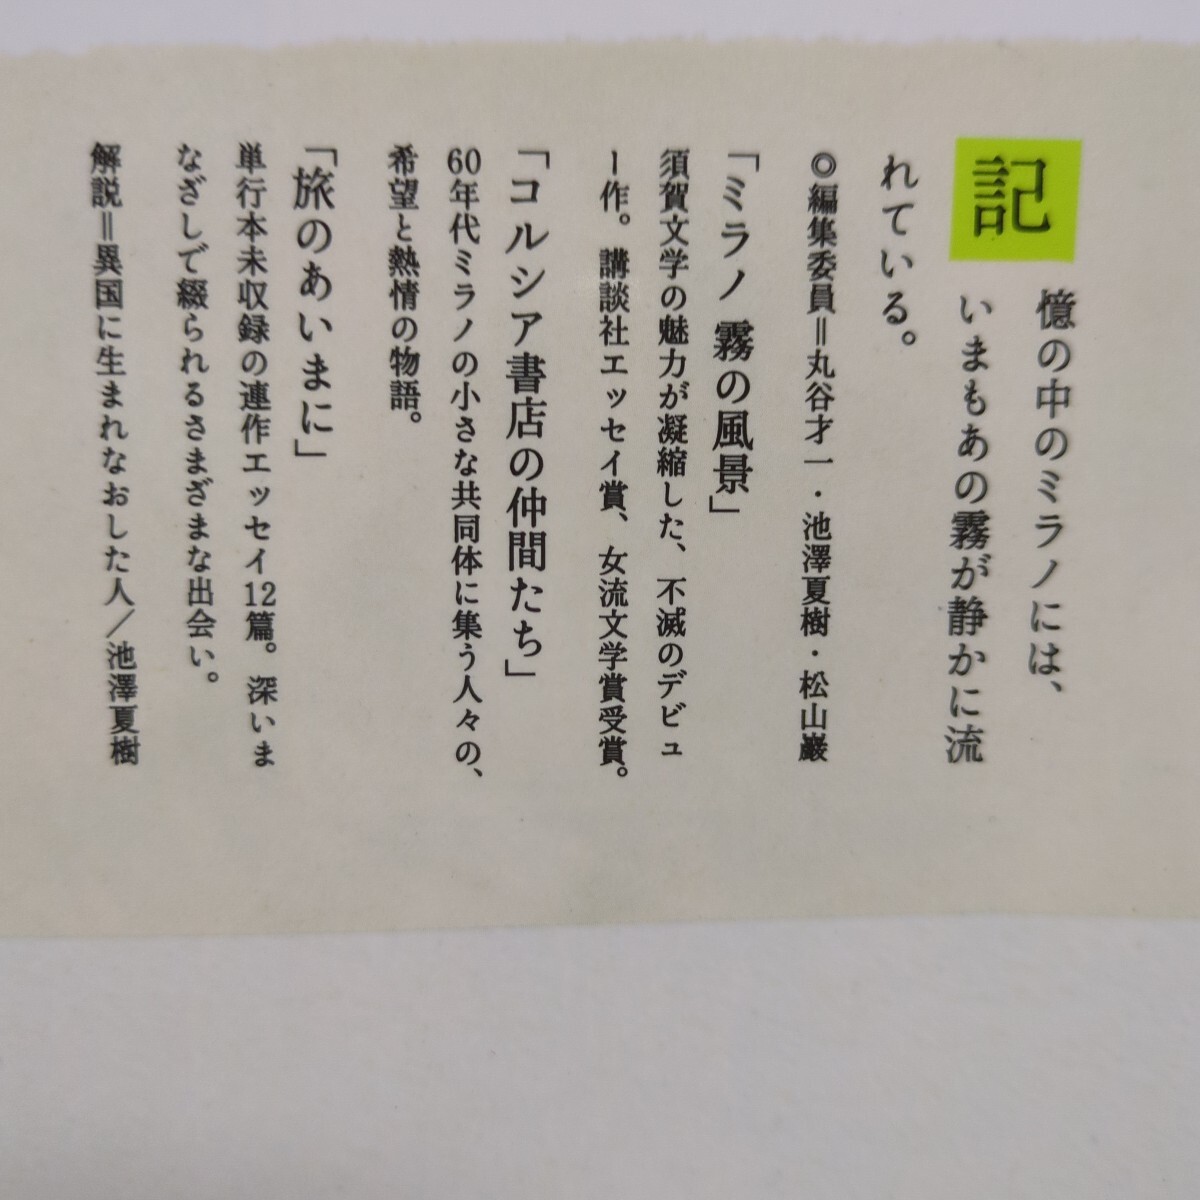 記憶の中のミラノには、
いまもあの霧が静かに流
れている。
◎編集委員＝丸谷才一・池澤夏樹・松山巖
「ミラノ 霧の風景」
須賀文学の魅力が凝縮した、不滅のデビュ
ー作。講談社エッセイ賞、女流文学賞受賞。
「コルシア書店の仲間たち」
60年代ミラノの小さな共同体に集う人々の、
希望と熱情の物語。
「旅のあいまに」
単行本未収録の連作エッセイ12篇。深いま
なざしで綴られるさまざまな出会い。
解説＝異国に生まれなおした人／池澤夏樹